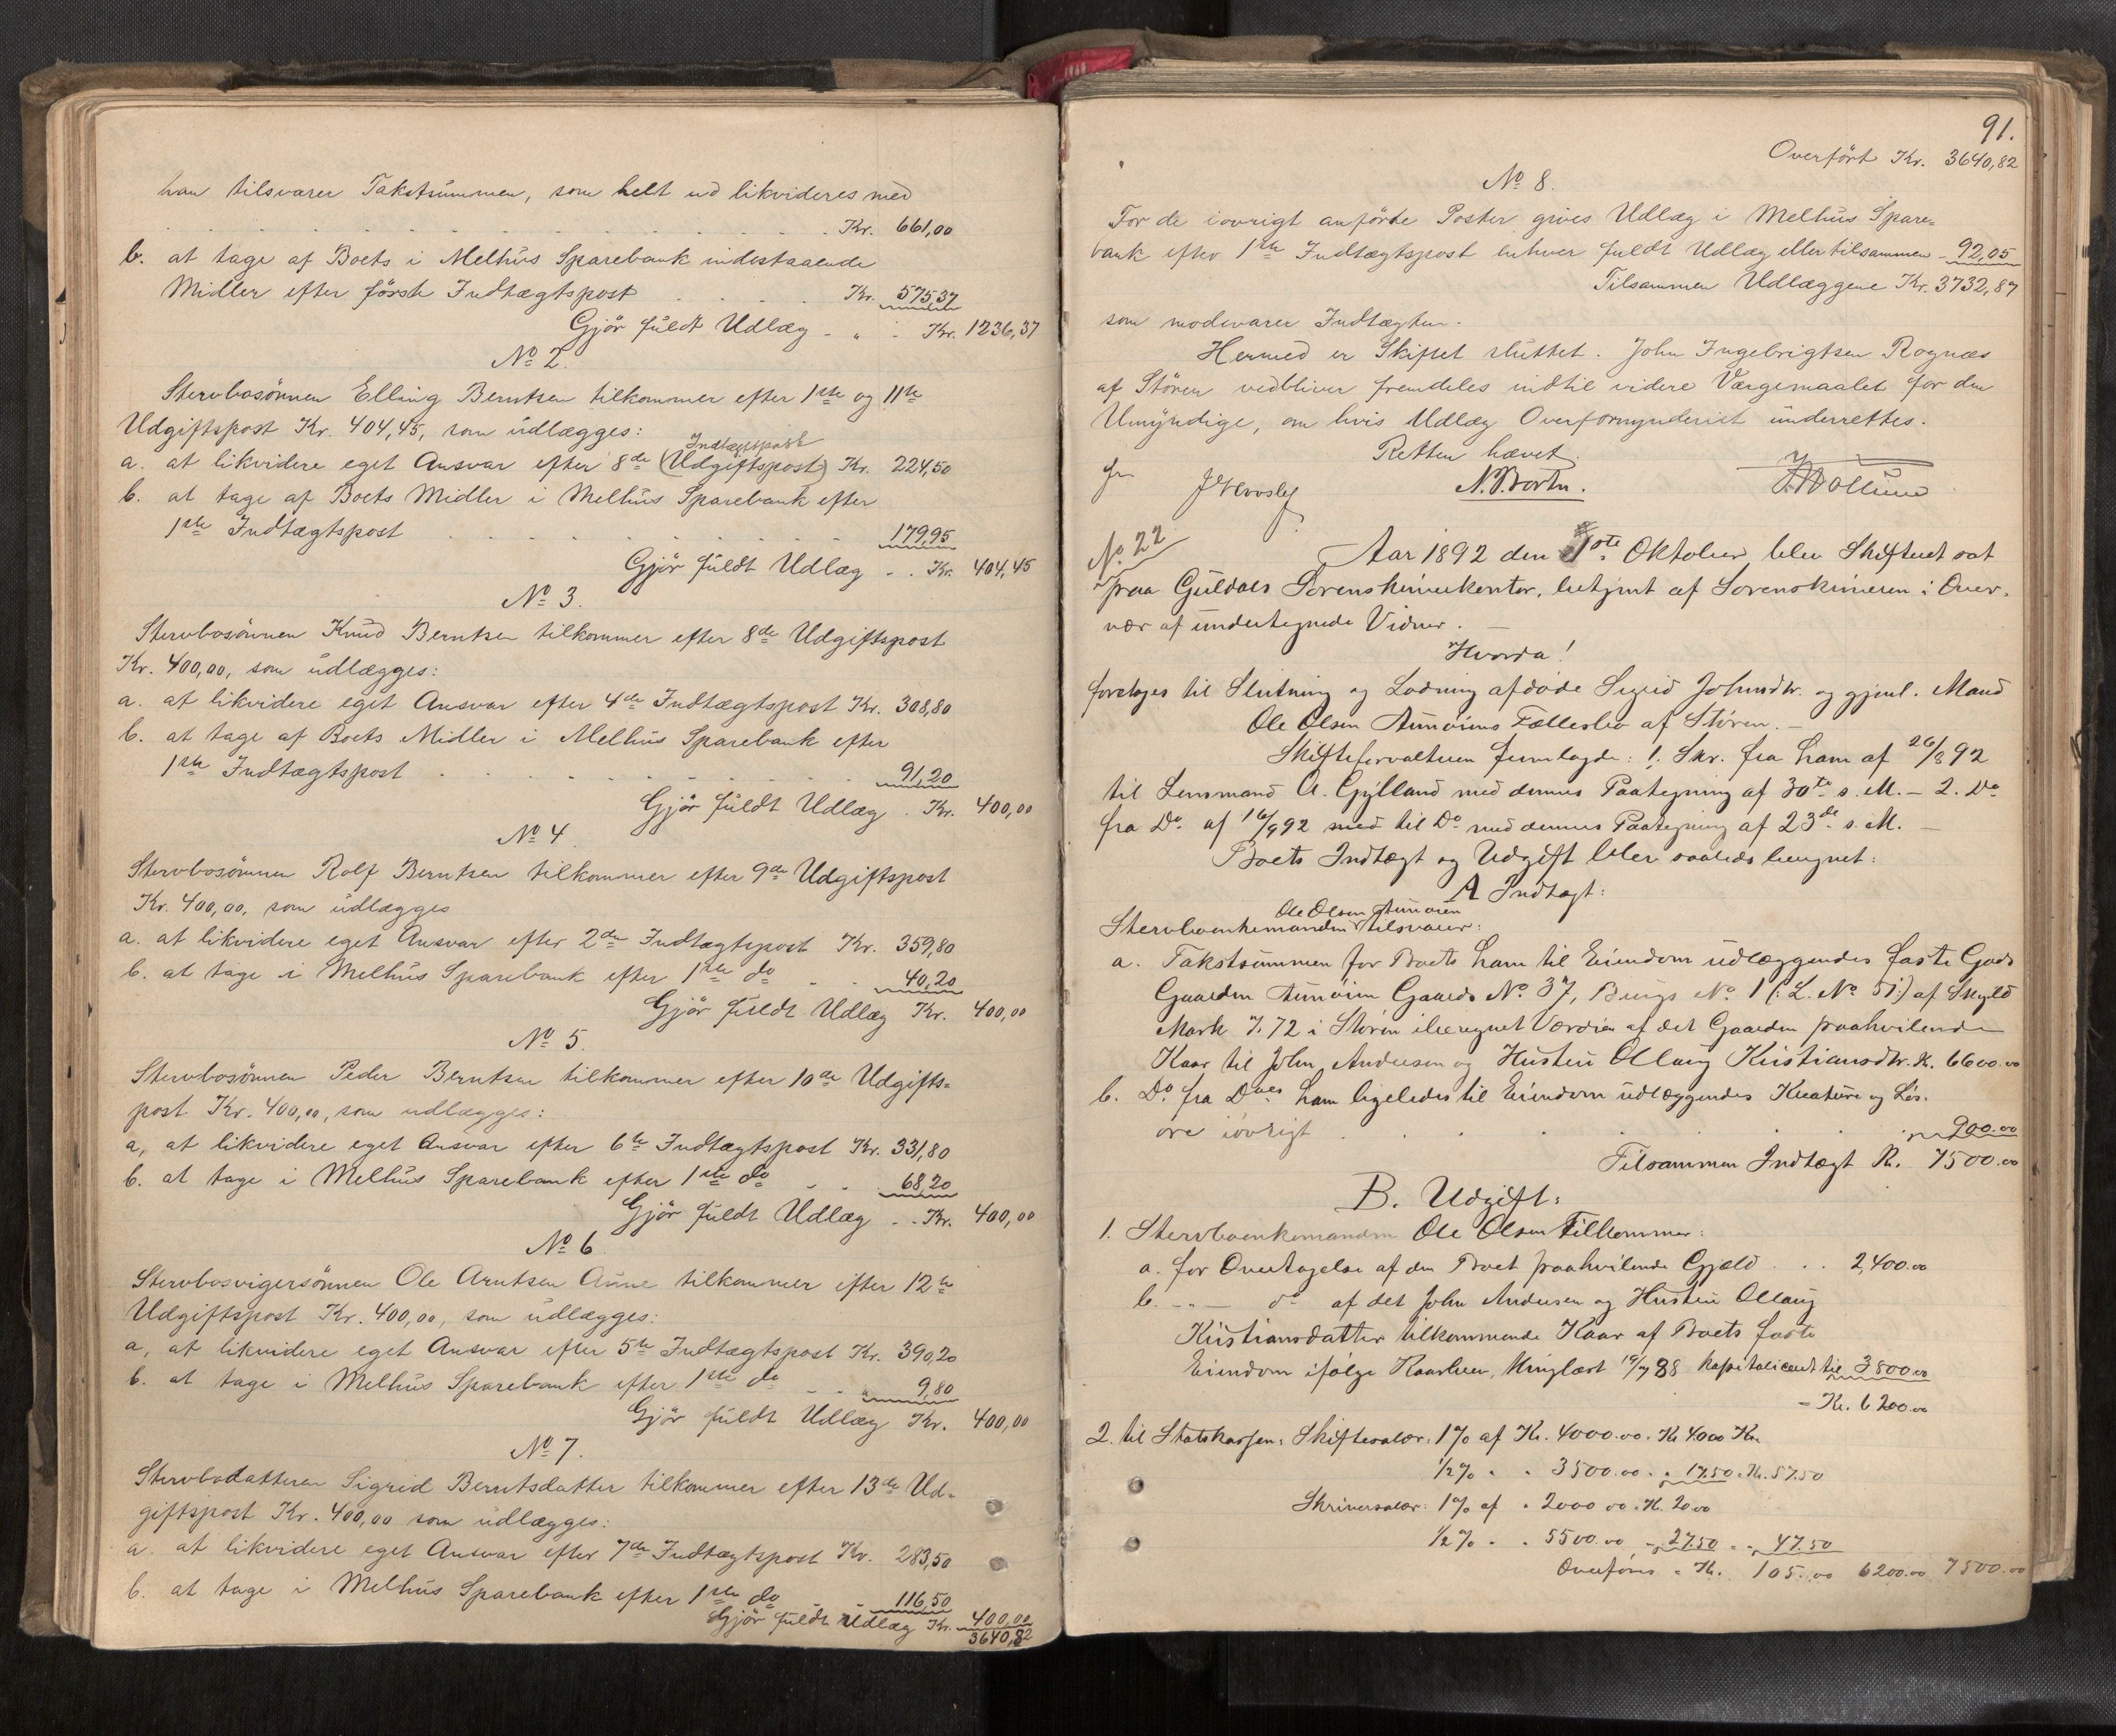 han tilsvarer Takstsummen, som helt ud likvideres med
. . . . . . . . . . . . Kr. 661,00
b. at tage af Boets i Melhus Sparebank indestaaende
Midler efter förste Indtægtspost . . . . . Kr. 575,37
Gjör fuldt Udlæg - " - Kr. 1236,37
No 2.
Stervbosönnen Elling Berntsen tilkommer efter 1ste og 11te
Udgiftspost Kr. 404,45, som udlægges:
Indtægtspost
a. at likvidere eget Ansvar efter 8de (Udgiftspost) Kr. 224,50
b. at tage af Boets Midler i Melhus Sparebank efter
1ste Indtægtspost . . . . . . . . 179,95
Gjör fuldt Udlæg . . Kr. 404,45
No 3.
Stervbosönnen Knud Berntsen tilkommer efter 8de Udgiftspost
Kr. 400,00, som udlægges:
a. at likvidere eget Ansvar efter 4de Indtægtspost Kr. 308,80
b. at tage af Boets Midler i Melhus Sparebank efter
1ste Indtægtspost . . . . . . . . 91,20
Gjör fuldt Udlæg . Kr. 400,00
No 4.
Stervbosönnen Rolf Berntsen tilkommer efter 9de Udgiftspost
Kr. 400,00, som udlægges
a. at likvidere eget Ansvar efter 2den Indtægtspost Kr. 359,80
b. at tage i Melhus Sparebank efter 1ste do . . 40,20
Gjör fuldt Udlæg Kr. 400,00
No 5.
Stervbosönnen Peder Berntsen tilkommer efter 10de Udgifts=
post Kr. 400,00, som udlægges:
a, at likvidere eget Ansvar efter 6te Indtægtspost Kr. 331,80
b. at tage i Melhus Sparebank efter 1ste do . . 68,20
Gjör fuldt Udlæg . . Kr. 400,00
No 6.
Stervbosvigersönnen Ole Arntsen Aune tilkommer efter 12te
Udgiftspost Kr. 400,00, som udlægges:
a, at likvidere eget Ansvar efter 5te Indtægtspost Kr. 390,20
b. at tage i Melhus Sparebank efter 1ste do . . " 9,80
Gjör fuldt Udlæg Kr. 400,00
No 7.
Stervbodatteren Sigrid Berntsdatter tilkommer efter 13de Ud-
giftspost Kr. 400,00 som udlægges:
a. at likvidere eget Ansvar efter 7de Indtægtspost Kr. 283,50
b. at tage i Melhus Sparebank efter 1ste do . . 116,50
Gjör fuldt Udlæg Kr. 400,00
3640,82
91.
Overfört Kr. 3640,82
No 8.
For de iövrigt anförte Poster gives Udlæg i Melhus Spare=
bank efter 1ste Indtægtspost enhver fuldt Udlæg eller tilsammen - 92,05
Tilsammen Udlæggene Kr. 3732,87
som modsvarer Indtægten.
Hermed er Skiftet sluttet. John Ingebrigtsen Rognæs
af Stören vedbliver fremdeles indtil videre Værgemaalet for den
Umyndige, om hvis Udlæg Overformynderiet underrettes.
Retten hævet.
No 22
Aar 1892 den 1ste Oktober blev Skifteret sat
paa Guldals Sorenskriverkontor, betjent af Sorenskriveren i Over-
vær af undertegnede Vidner. —
Hvorda!
foretoges til Slutning og Lodning afdöde Sigrid Johnsdtr. og gjenl. Mand
Ole Olsen Aunöiens Fællesbo af Stören. —
Skifteforvalteren fremlagde: 1. Skr. fra ham af 26/8 92
til Lensmand A. Gylland med dennes Paategning af 30te s. M. — 2. Do
fra Do. af 16/9 92 med til Do med dennes Paategning af 23de s. M. —
Boets Indtægt og Udgift blev saaledes beregnet:
A Indtægt:
Ole Olsen Aunöien
Stervboenkemanden tilsvarer:
a. Takstsummen for Boets ham til Eiendom udlæggendes faste Gods
Gaarden Aunöien Gaards No. 37, Brugs No. 1 (: L. No 51:) af Skyld
Mark 7.72 i Stören iberegnet Værdien af det Gaarden paahvilende
Kaar til John Andersen og Hustru Ollaug Kristiansdtr. Kr. 6600.00
b. Do fra Do ham ligeledes til Eiendom udlæggendes Kreature og Lös-
öre iövrigt . . . . . . " 900.00
Tilsammen Indtægt Kr. 7500.00
B. Udgift:
1. Stervboenkemanden Ole Olsen Tilkommer:
a. for Overtagelse af den Boet paahvilende Gjæld . . . 2,400.00
b. - " - do af det John Andersen og Hustru Ollaug
Kristiansdatter tilkommende Kaar af Boets faste
Eiendom ifölge Kaarbrev, thinglæst 19/7 88 kapitaliceret til 3800.00
- Kr. 6200.00
2. til Statskassen: Skiftesalær: 1% af Kr. 4000.00. Kr 40.00
1/2% " " 3500.00 " " 17.50 " Kr. 57.50
Skriversalær: 1% af " 2000.00 " Kr. 20.00
1/2% " " 5500.00 - " 27.50 " - " 47.50
Overföres " Kr. 105.00 6200.00 7500.00